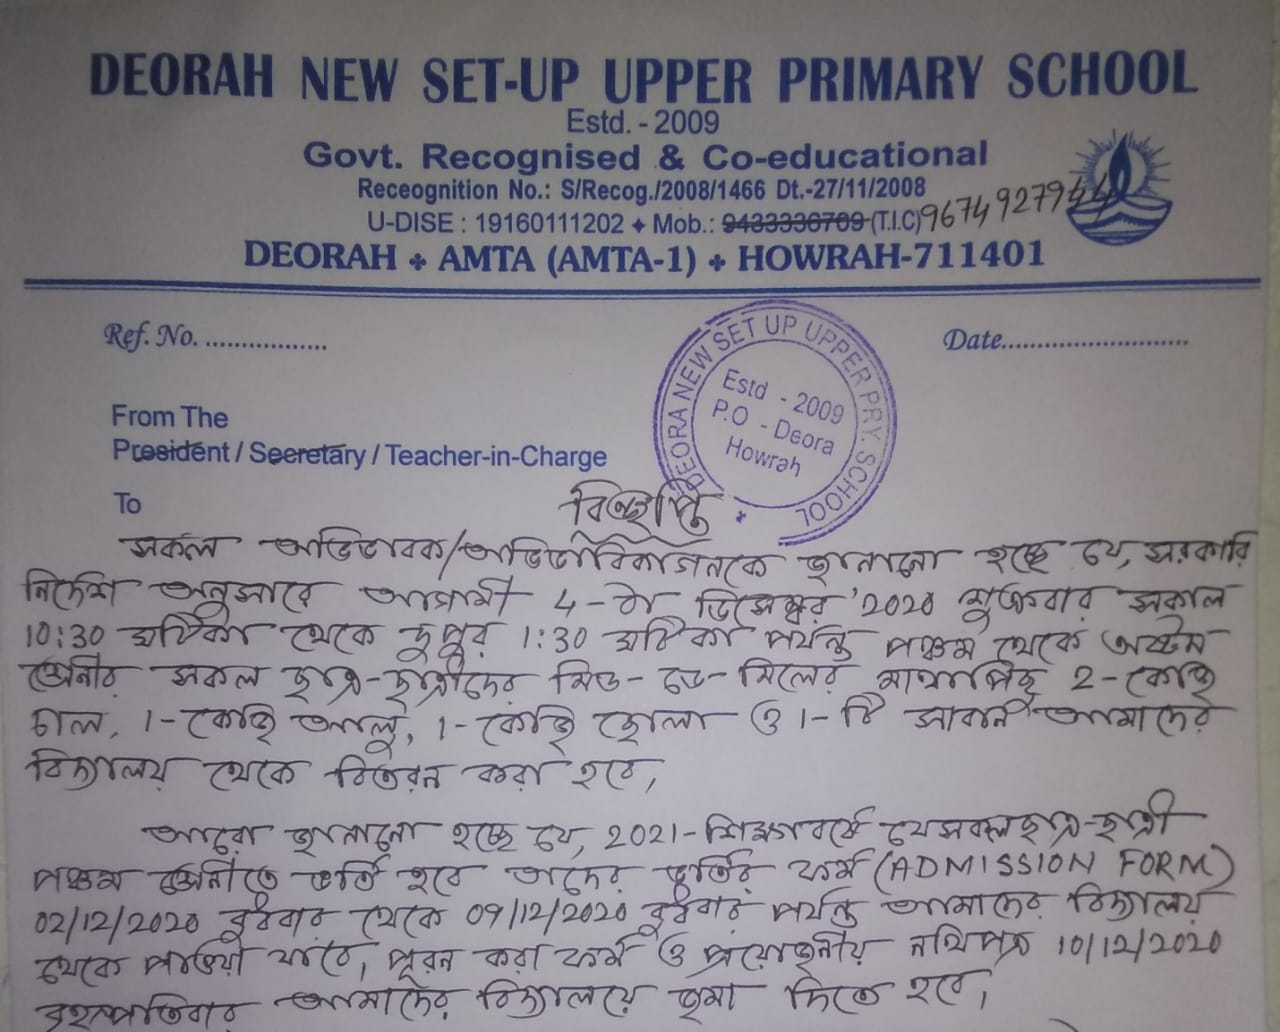 DEORAH NEW SET-UP UPPER PRIMARY SCHOOL
Estd. - 2009
Govt. Recognised & Co-educational
Receognition No.: S/Recog./2008/1466 Dt.-27/11/2008
U-DISE : 19160111202 ✦ Mob.: 9433336709 (T.I.C) 9674927944
DEORAH ✤ AMTA (AMTA-1) ✤ HOWRAH-711401
Ref. No. .................
Date..........................
DEORA NEW SET UP UPPER PRY. SCHOOL
Estd - 2009
P.O - Deora
Howrah
From The
President / Secretary / Teacher-in-Charge
To
বিজ্ঞপ্তি
সকল অভিভাবক/অভিভাবিকাগনকে জানানো হচ্ছে যে, সরকারি
নির্দেশ অনুসারে আগামী 4-ঠা ডিসেম্বর '2020 শুক্রবার সকাল
10:30 ঘটিকা থেকে দুপুর 1:30 ঘটিকা পর্যন্ত পঞ্চম থেকে অষ্টম
শ্রেনীর সকল ছাত্র-ছাত্রীদের মিড-ডে-মিলের মাথাপিছু 2-কেজি
চাল, 1-কেজি আলু, 1-কেজি ছোলা ও 1-টি সাবান আমাদের
বিদ্যালয় থেকে বিতরন করা হবে,
আরো জানানো হচ্ছে যে, 2021-শিক্ষাবর্ষে যেসকল ছাত্র-ছাত্রী
পঞ্চম শ্রেনীতে ভর্তি হবে তাদের ভর্তির ফর্ম (ADMISSION FORM)
02/12/2020 বুধবার থেকে 09/12/2020 বুধবার পর্যন্ত আমাদের বিদ্যালয়
থেকে পাওয়া যাবে, পূরন করা ফর্ম ও প্রয়োজনীয় নথিপত্র 10/12/2020
বৃহস্পতিবার আমাদের বিদ্যালয়ে জমা দিতে হবে,